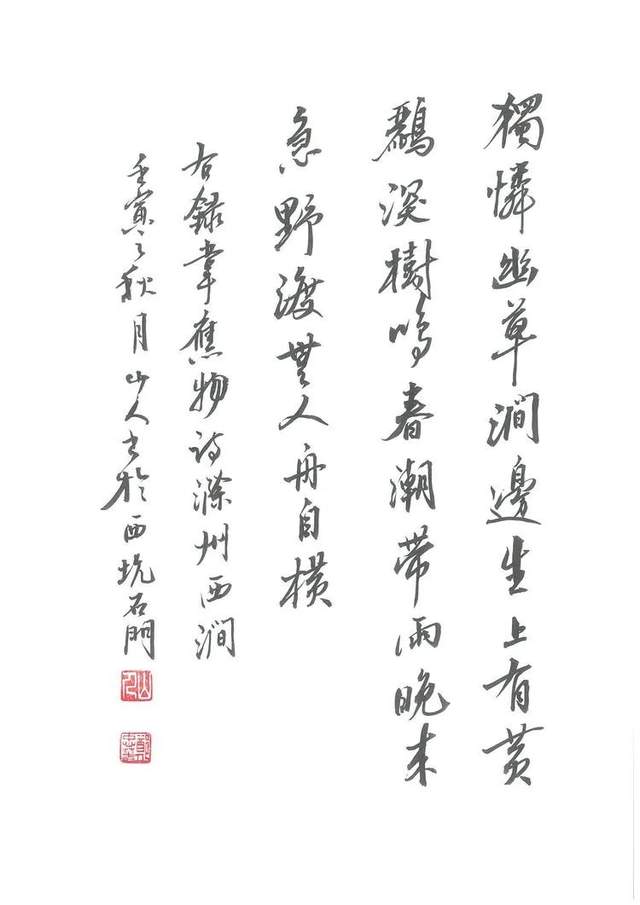 獨憐幽草澗邊生上有黄
鸝深樹鳴春潮帶雨晚来
急野渡無人舟自橫
右録韋應物詩滁州西澗
壬寅之秋月山人書於西坑石門
山人